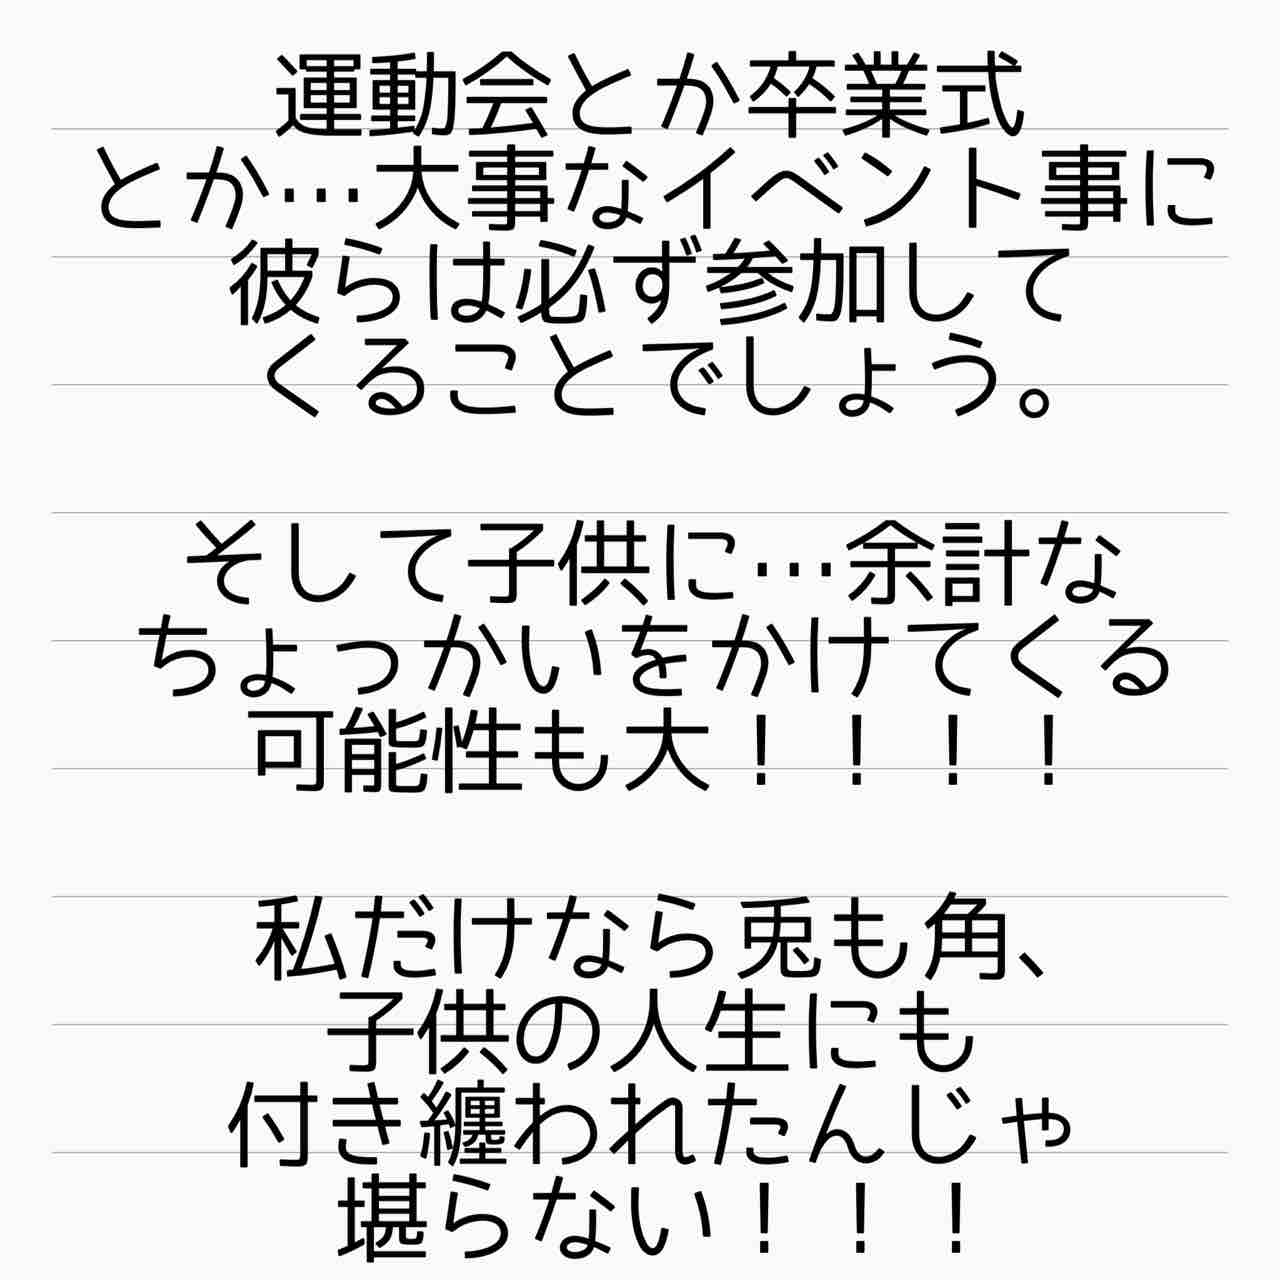 運動会とか卒業式
とか…大事なイベント事に
彼らは必ず参加して
くることでしょう。
そして子供に…余計な
ちょっかいをかけてくる
可能性も大！！！！
私だけなら兎も角、
子供の人生にも
付き纏われたんじゃ
堪らない！！！